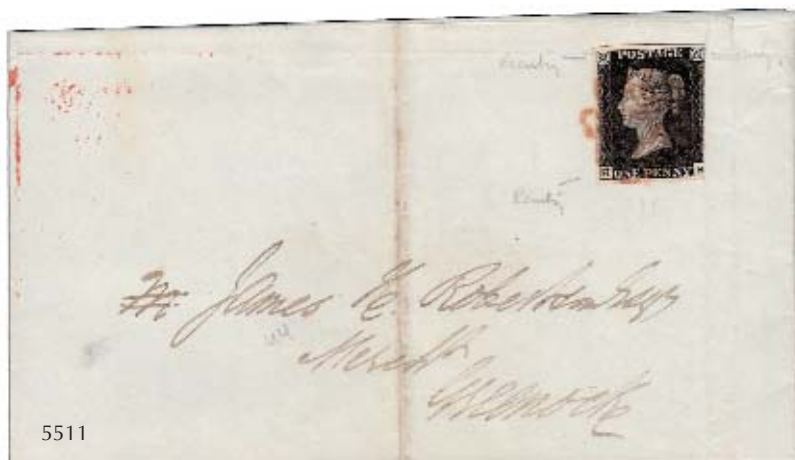 POSTAGE
ONE PENNY
Mr James E. Robertson Esqr
Merct
Greenock
44
5511